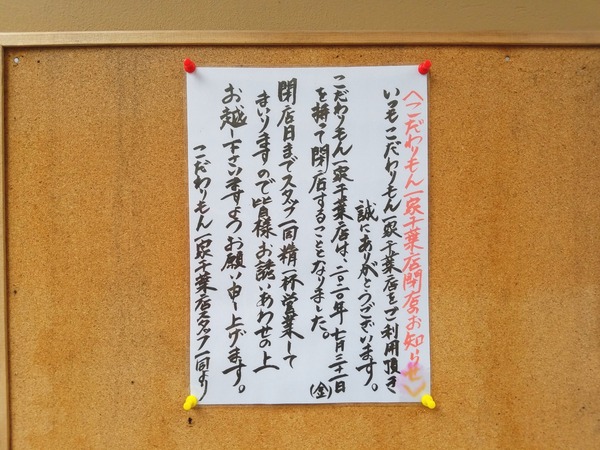 〈こだわりもん一家千葉店閉店のお知らせ〉
いつもこだわりもん一家千葉店をご利用頂き
誠にありがとうございます。
こだわりもん一家千葉店は、二〇二〇年七月三十一日(金)
を持って閉店することとなりました。
閉店日までスタッフ一同精一杯営業して
まいりますので皆様お誘いあわせの上
お越し下さいますようお願い申し上げます。
こだわりもん一家千葉店スタッフ一同より